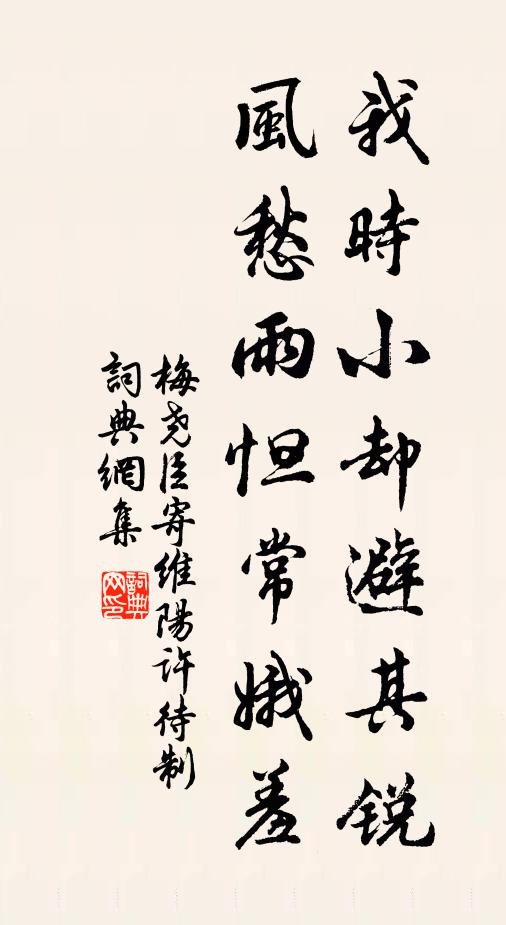 我時小却避其銳
風愁雨怛常娥羞
梅尧臣寄維陽許待制
詞典網集
詞典網印